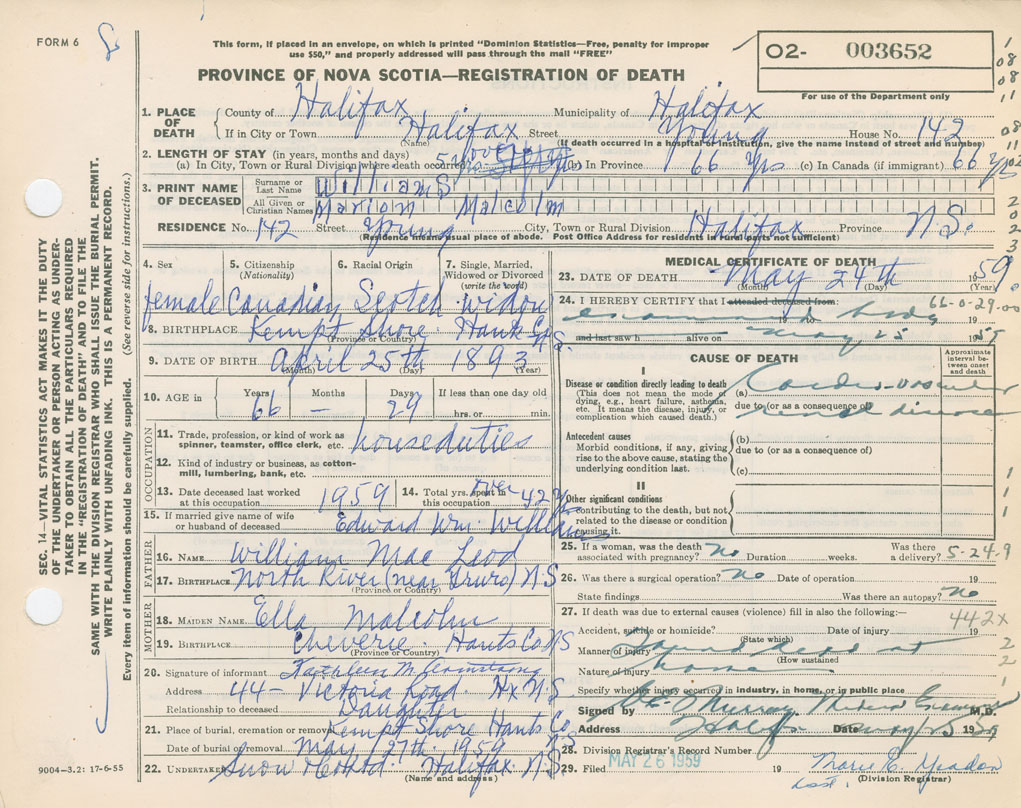 FORM 6
This form, if placed in an envelope, on which is printed "Dominion Statistics—Free, penalty for improper
use $50," and properly addressed will pass through the mail "FREE"
PROVINCE OF NOVA SCOTIA—REGISTRATION OF DEATH
O2- 003652
For use of the Department only
1. PLACE OF DEATH
County of Halifax Municipality of Halifax
If in City or Town Halifax Street Young House No. 142
(Name) (If death occurred in a hospital or institution, give the name instead of street and number)
2. LENGTH OF STAY (in years, months and days)
(a) In City, Town or Rural Division where death occurred over (b) In Province 66 yrs (c) In Canada (if immigrant) 66 yrs
3. PRINT NAME OF DECEASED
Surname or Last Name Williams
All Given or Christian Names Marion Malcolm
RESIDENCE No. 142 Street Young City, Town or Rural Division Halifax Province N.S.
(Residence means usual place of abode. Post Office Address for residents in rural parts not sufficient)
4. Sex
female
5. Citizenship
(Nationality)
Canadian
6. Racial Origin
Scotch
7. Single, Married,
Widowed or Divorced
(write the word)
widow
8. BIRTHPLACE Kempt Shore Hants Co N.S.
(Province or Country)
9. DATE OF BIRTH April 25th 1893
(Month) (Day) (Year)
10. AGE in Years 66 Months — Days 29 If less than one day old
hrs. or min.
OCCUPATION
11. Trade, profession, or kind of work as
spinner, teamster, office clerk, etc. houseduties
12. Kind of industry or business, as cotton-
mill, lumbering, bank, etc.
13. Date deceased last worked
at this occupation 1959
14. Total yrs. spent in
this occupation over 42 yrs
15. If married give name of wife
or husband of deceased Edward Wm. Williams
FATHER
16. NAME William Mac Leod
17. BIRTHPLACE North River (near Truro) N S
(Province or Country)
MOTHER
18. MAIDEN NAME Ella Malcolm
19. BIRTHPLACE Cheverie Hants Co NS
(Province or Country)
20. Signature of informant Kathleen M. Armstrong
Address 44 - Victoria Road. Hx N.S
Relationship to deceased Daughter
21. Place of burial, cremation or removal Kempt Shore Hants Co. N S
Date of burial or removal May 27th 1959
22. UNDERTAKER Snow Halifax N.S
(Name and address)
9004—3.2: 17-6-55
MEDICAL CERTIFICATE OF DEATH
23. DATE OF DEATH May 24th 1959
(Month) (Day) (Year)
24. I HEREBY CERTIFY that I attended deceased from:
66-0-29-00
examined body
19 to 19
and last saw h alive on May 25 1959
CAUSE OF DEATH
Approximate interval between onset and death
I
Disease or condition directly leading to death
(This does not mean the mode of
dying, e.g., heart failure, asthenia,
etc. It means the disease, injury, or
complication which caused death.)
(a) Cardio-vascular
due to (or as a consequence of)
disease
Antecedent causes
Morbid conditions, if any, giving
rise to the above cause, stating the
underlying condition last.
(b)
due to (or as a consequence of)
(c)
II
Other significant conditions
contributing to the death, but not
related to the disease or condition
causing it.
25. If a woman, was the death
associated with pregnancy? no Duration weeks. Was there
a delivery?
5-24-9
26. Was there a surgical operation? No Date of operation 19
State findings Was there an autopsy? no
27. If death was due to external causes (violence) fill in also the following:—
442X
Accident, suicide or homicide? Date of injury 19
(State which)
Manner of injury Found dead at
(How sustained
Nature of injury home
Specify whether injury occurred in industry, in home, or in public place
Signed by Murray Medical Examiner M.D.
Address Halifax Date May 25 1959
28. Division Registrar's Record Number
29. Filed MAY 26 1959 19 Marie E. Yeadon
(Division Registrar)
SEC. 14—VITAL STATISTICS ACT MAKES IT THE DUTY
OF THE UNDERTAKER OR PERSON ACTING AS UNDER-
TAKER TO OBTAIN ALL THE PARTICULARS REQUIRED
IN THE "REGISTRATION OF DEATH" AND TO FILE THE
SAME WITH THE DIVISION REGISTRAR WHO SHALL ISSUE THE BURIAL PERMIT.
WRITE PLAINLY WITH UNFADING INK. THIS IS A PERMANENT RECORD.
Every item of information should be carefully supplied. (See reverse side for instructions.)